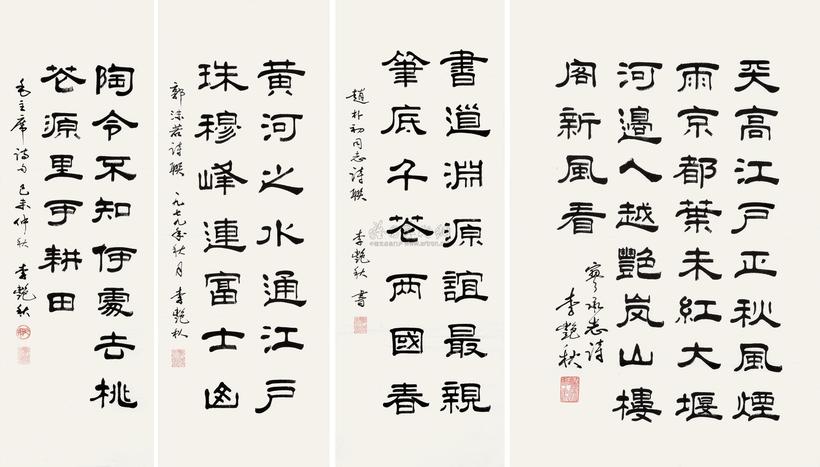 天高江戶正秋風煙
雨京都葉未紅大堰
河邊人越艷岚山樓
阁新風看
廖承志诗
李艷秋
書道淵源誼最親
筆底千花两國春
趙朴初同志诗聯 李艷秋 書
黄河之水通江戶
珠穆峰連富士山
郭沫若诗聯 一九七九年秋月 李艷秋
陶令不知何處去桃
花源里可耕田
毛主席诗句 己未仲秋 李艷秋